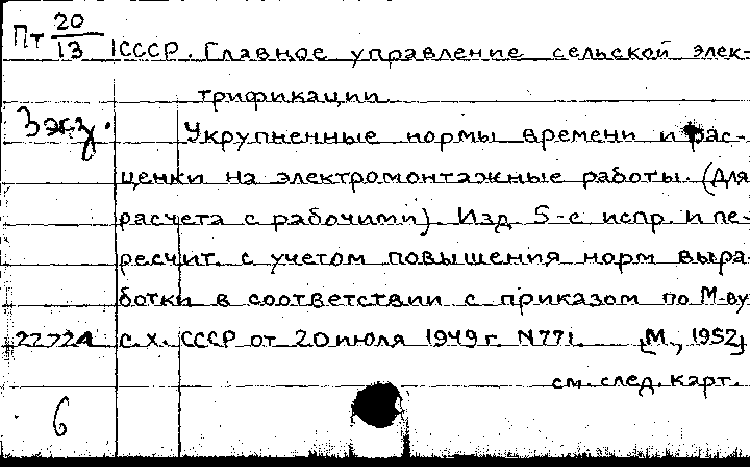 Пт 20/13 СССР. Главное управление сельской элек-
трификации.
3 экз. Укрупненные нормы времени и рас-
ценки на электромонтажные работы. (Для
расчета с рабочими). Изд. 5-е испр. и пе-
ресчит. с учетом повышения норм выра-
ботки в соответствии с приказом по М-ву
22724 с.х. СССР от 20 июля 1949 г. N 771. [М., 1952]
см. след. карт.
6